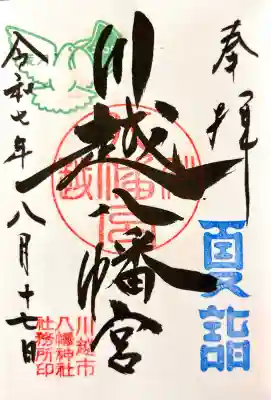 奉拝
川越八幡宮
令和七年八月十七日
夏詣
川越市
八幡神社
社務所印